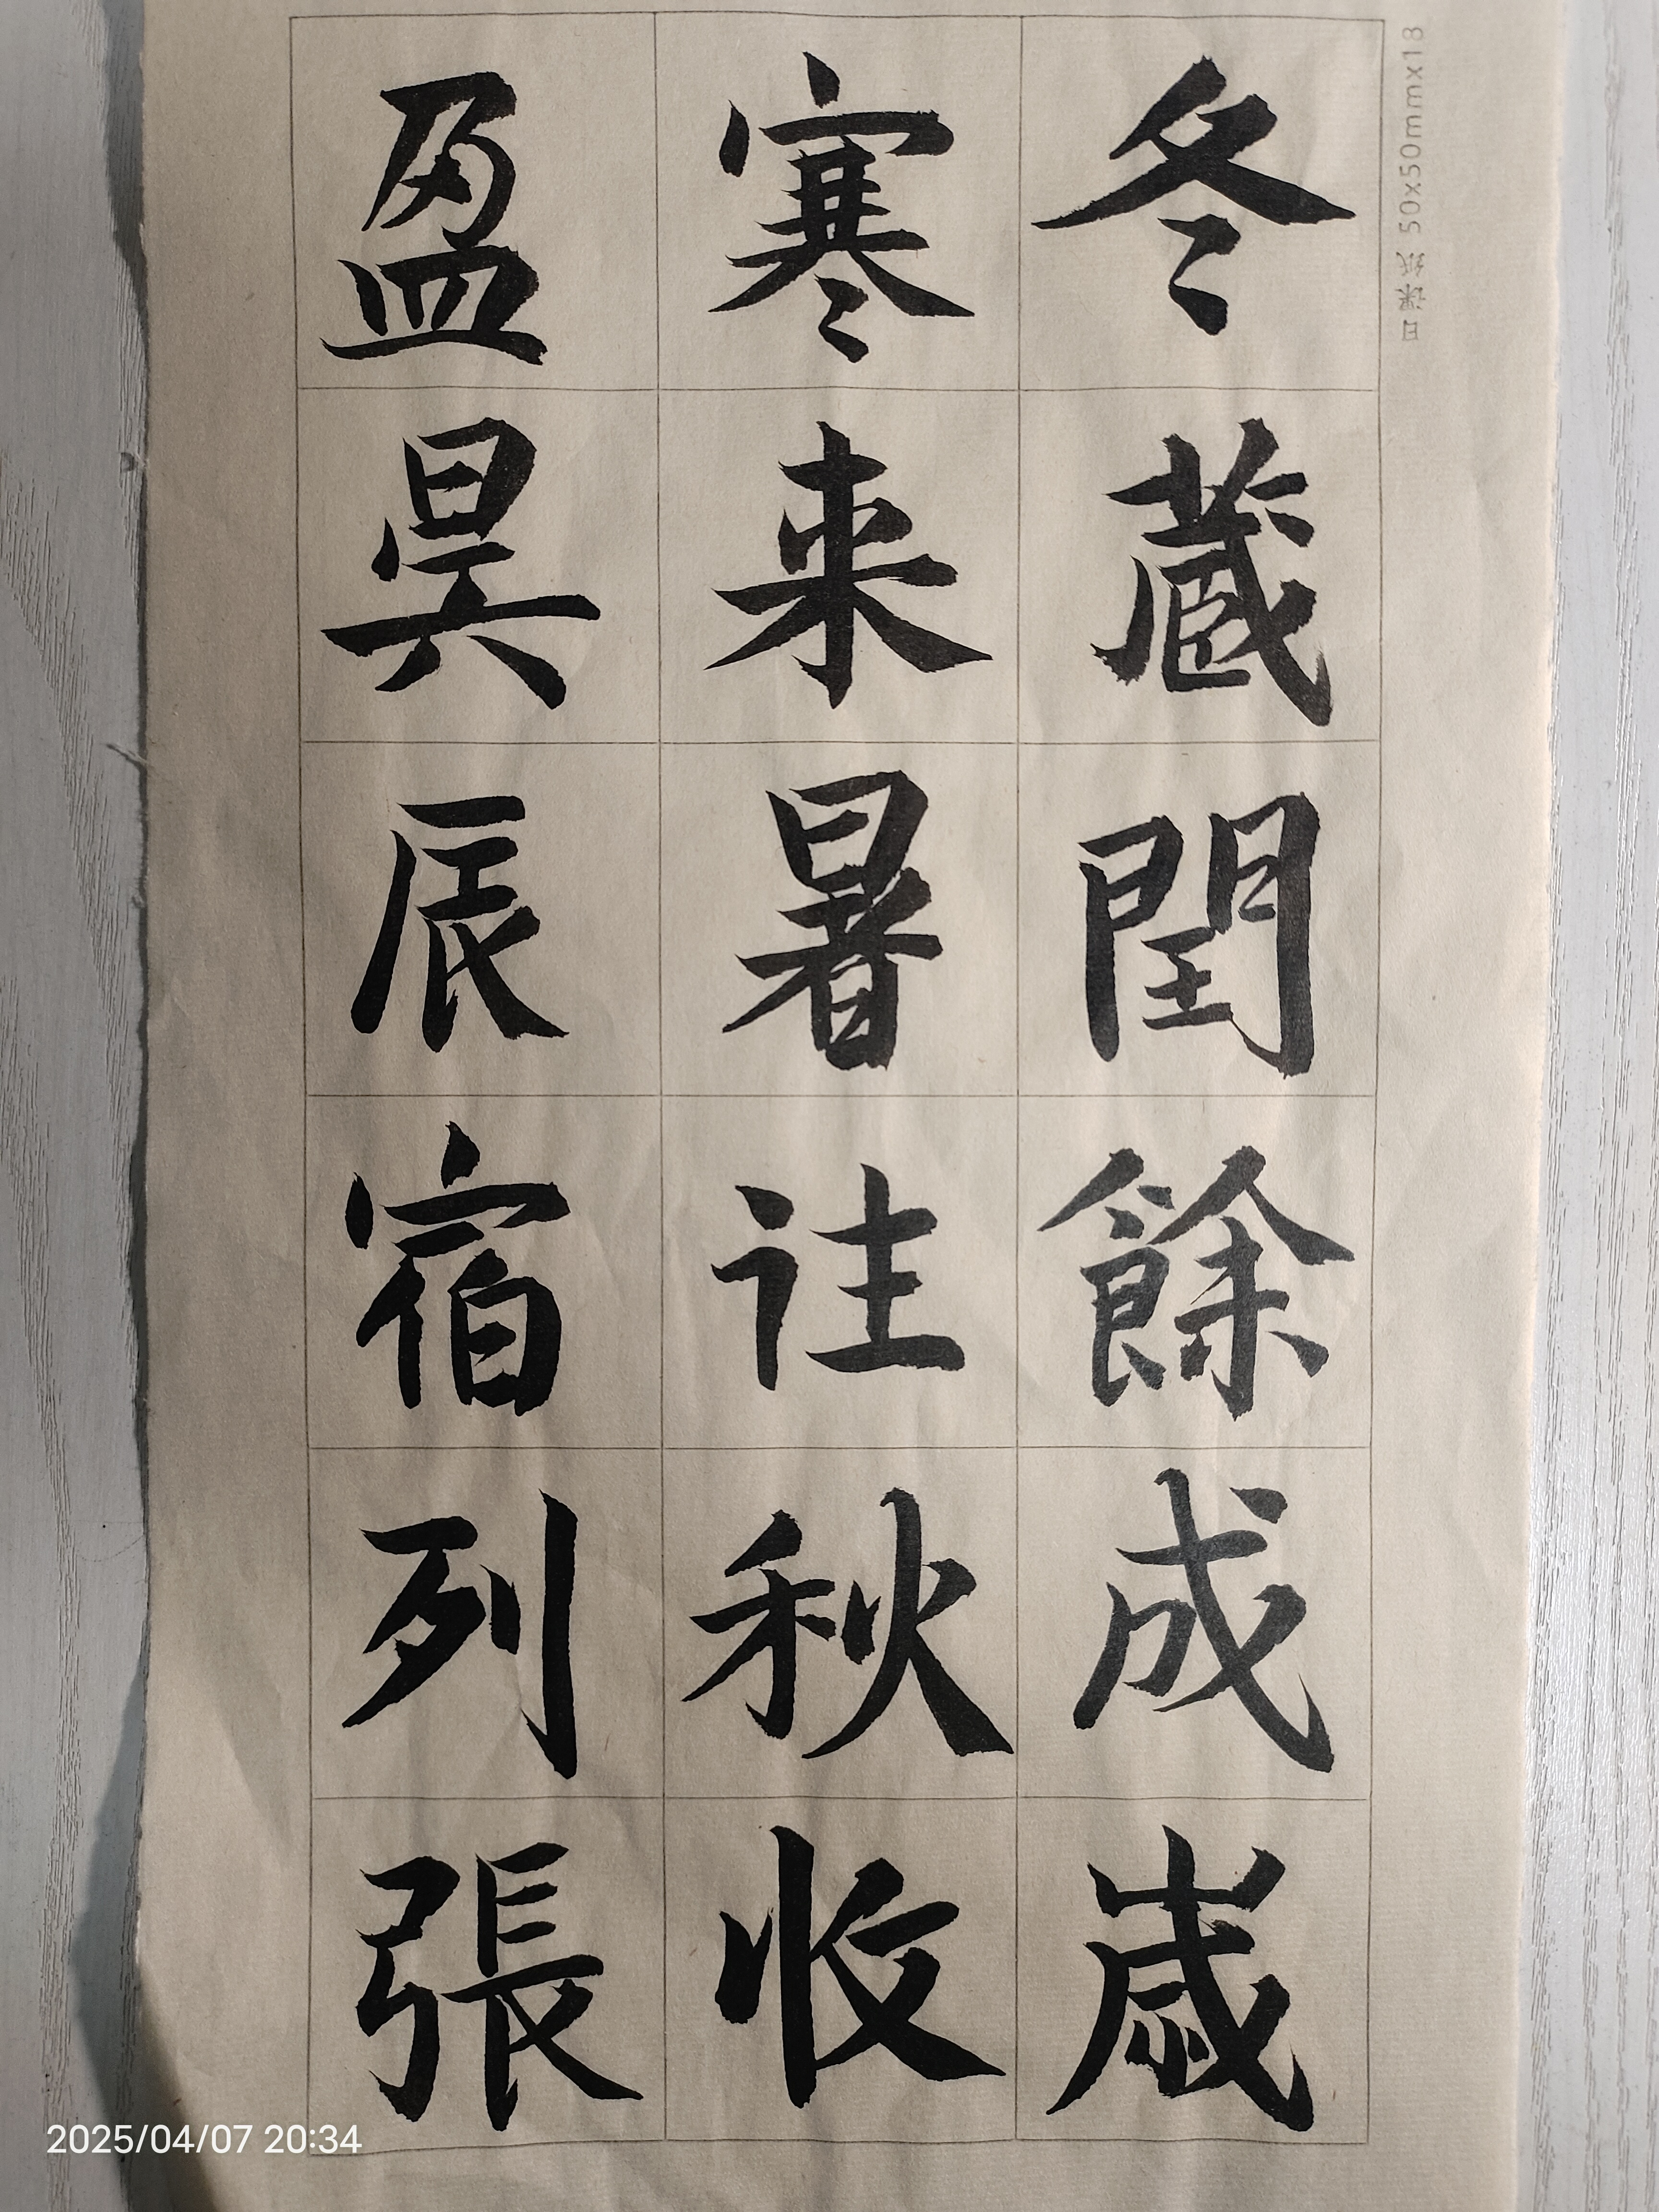 盈昃辰宿列張
寒来暑往秋收
冬蔵閏餘成歳
日课纸 50x50mmx18
2025/04/07 20:34